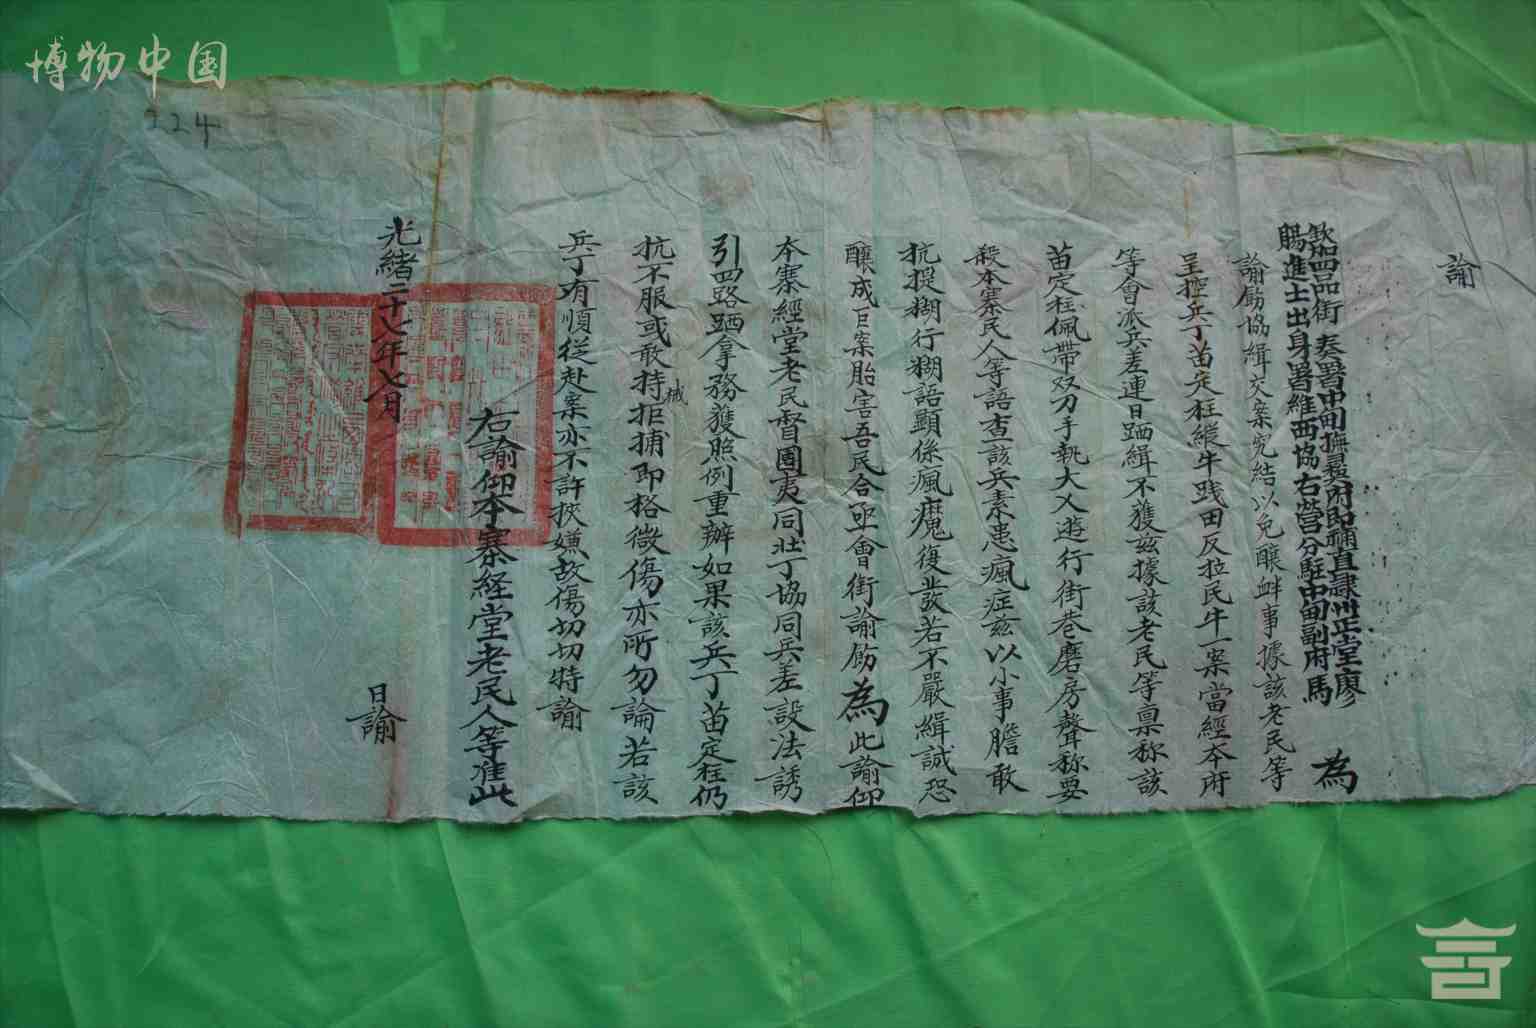 博物中国
224
諭
欽加四品銜奏署中甸撫彝府即補直隷州正堂廖
賜進士出身署維西協右營分駐中甸副府馬 為
諭飭協緝交案究結以免釀衅事據該老民等
呈控兵丁苗定枉縱牛践田反拉民牛一案當經本府
等會派兵差連日跴緝不獲兹據該老民等禀称該
苗定枉佩帶双刀手執大乂遊行街巷磨房聲称要
殺本寨民人等語查該兵素患瘋症兹以小事膽敢
抗提糊行糊語顕係瘋魔復發若不嚴緝誠恐
釀成巨案胎害吾民合亟會銜諭飭為此諭仰
本寨經堂老民督團夷同壯丁協同兵差設法誘
引四路跴拿務獲照例重辦如果該兵丁苗定枉仍
抗不服或敢持械拒捕即格微傷亦所勿論若該
兵丁有順従赴案亦不許挾嫌故傷切切特諭
右諭仰本寨経堂老民人等准此
光緒二十七年七月 日諭